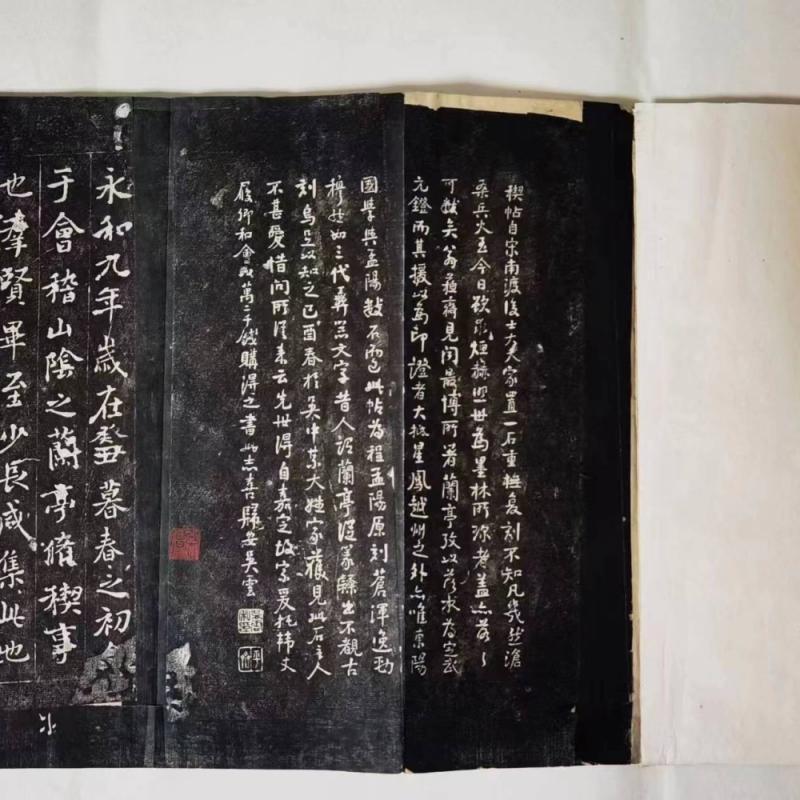 禊帖自宋南渡後士大夫家置一石重橅复刻不知凡幾然滄
桒兵火至今日欲求烜赫照世為墨林所珍者蓋亦落落
可數矣翁蘇齋見聞最博所著蘭亭攷以落水為定武
元鐙而其援以為印證者大抵星鳳越州之外亦唯東陽
國學與孟陽數石而已此帖為程孟陽原刻蒼渾逸勁
穆然如三代彝器文字昔人謂蘭亭從篆隸出不觀古
刻烏足以知之己酉春於吳中某大姓家獲見此石主人
不甚愛惜問所從來云先世得自嘉定故家爰托韓丈
履卿和會以萬二千錢購得之書此志喜歸安吳雲
永和九年歲在癸丑暮春之初會
于會稽山陰之蘭亭脩禊事
也羣賢畢至少長咸集此地